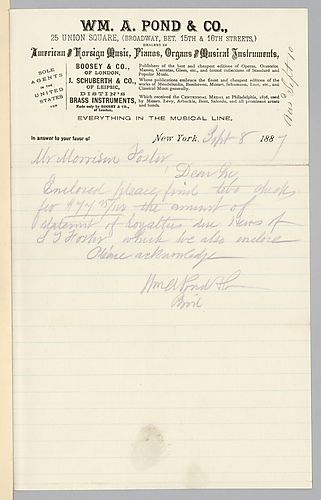 WM. A. POND & CO.,
25 UNION SQUARE, (BROADWAY, BET. 15TH & 16TH STREETS,)
DEALERS IN
American & Foreign Music, Pianos, Organs & Musical Instruments,
SOLE
AGENTS
IN THE
UNITED
STATES
FOR
BOOSEY & CO.,
OF LONDON,
J. SCHUBERTH & CO.,
OF LEIPSIC,
DISTIN'S
BRASS INSTRUMENTS,
Made only by BOOSEY & CO.,
of London.
Publishers of the best and cheapest editions of Operas, Oratorios
Masses, Cantatas, Glees, etc., and bound collections of Standard and
Popular Music.
Whose publications embrace the finest and cheapest editions of the
works of Mendelssohn, Beethoven, Mozart, Schumann, Liszt, etc., and
Classical Music generally.
Which received the CENTENNIAL MEDAL at Philadelphia, 1876, used
by Messrs. Levy, Arbuckle, Bent, Salcedo, and all prominent artists
and bands.
EVERYTHING IN THE MUSICAL LINE.
Ans Sept 10
In answer to your favor of
New York, Sept 8 1887
Mr Morrison Foster
Dear Sir
Enclosed please find two checks
for the amount of
statement of royalties due heirs of
S. C. Foster, which we also enclose
Please acknowledge
Wm A Pond & Co